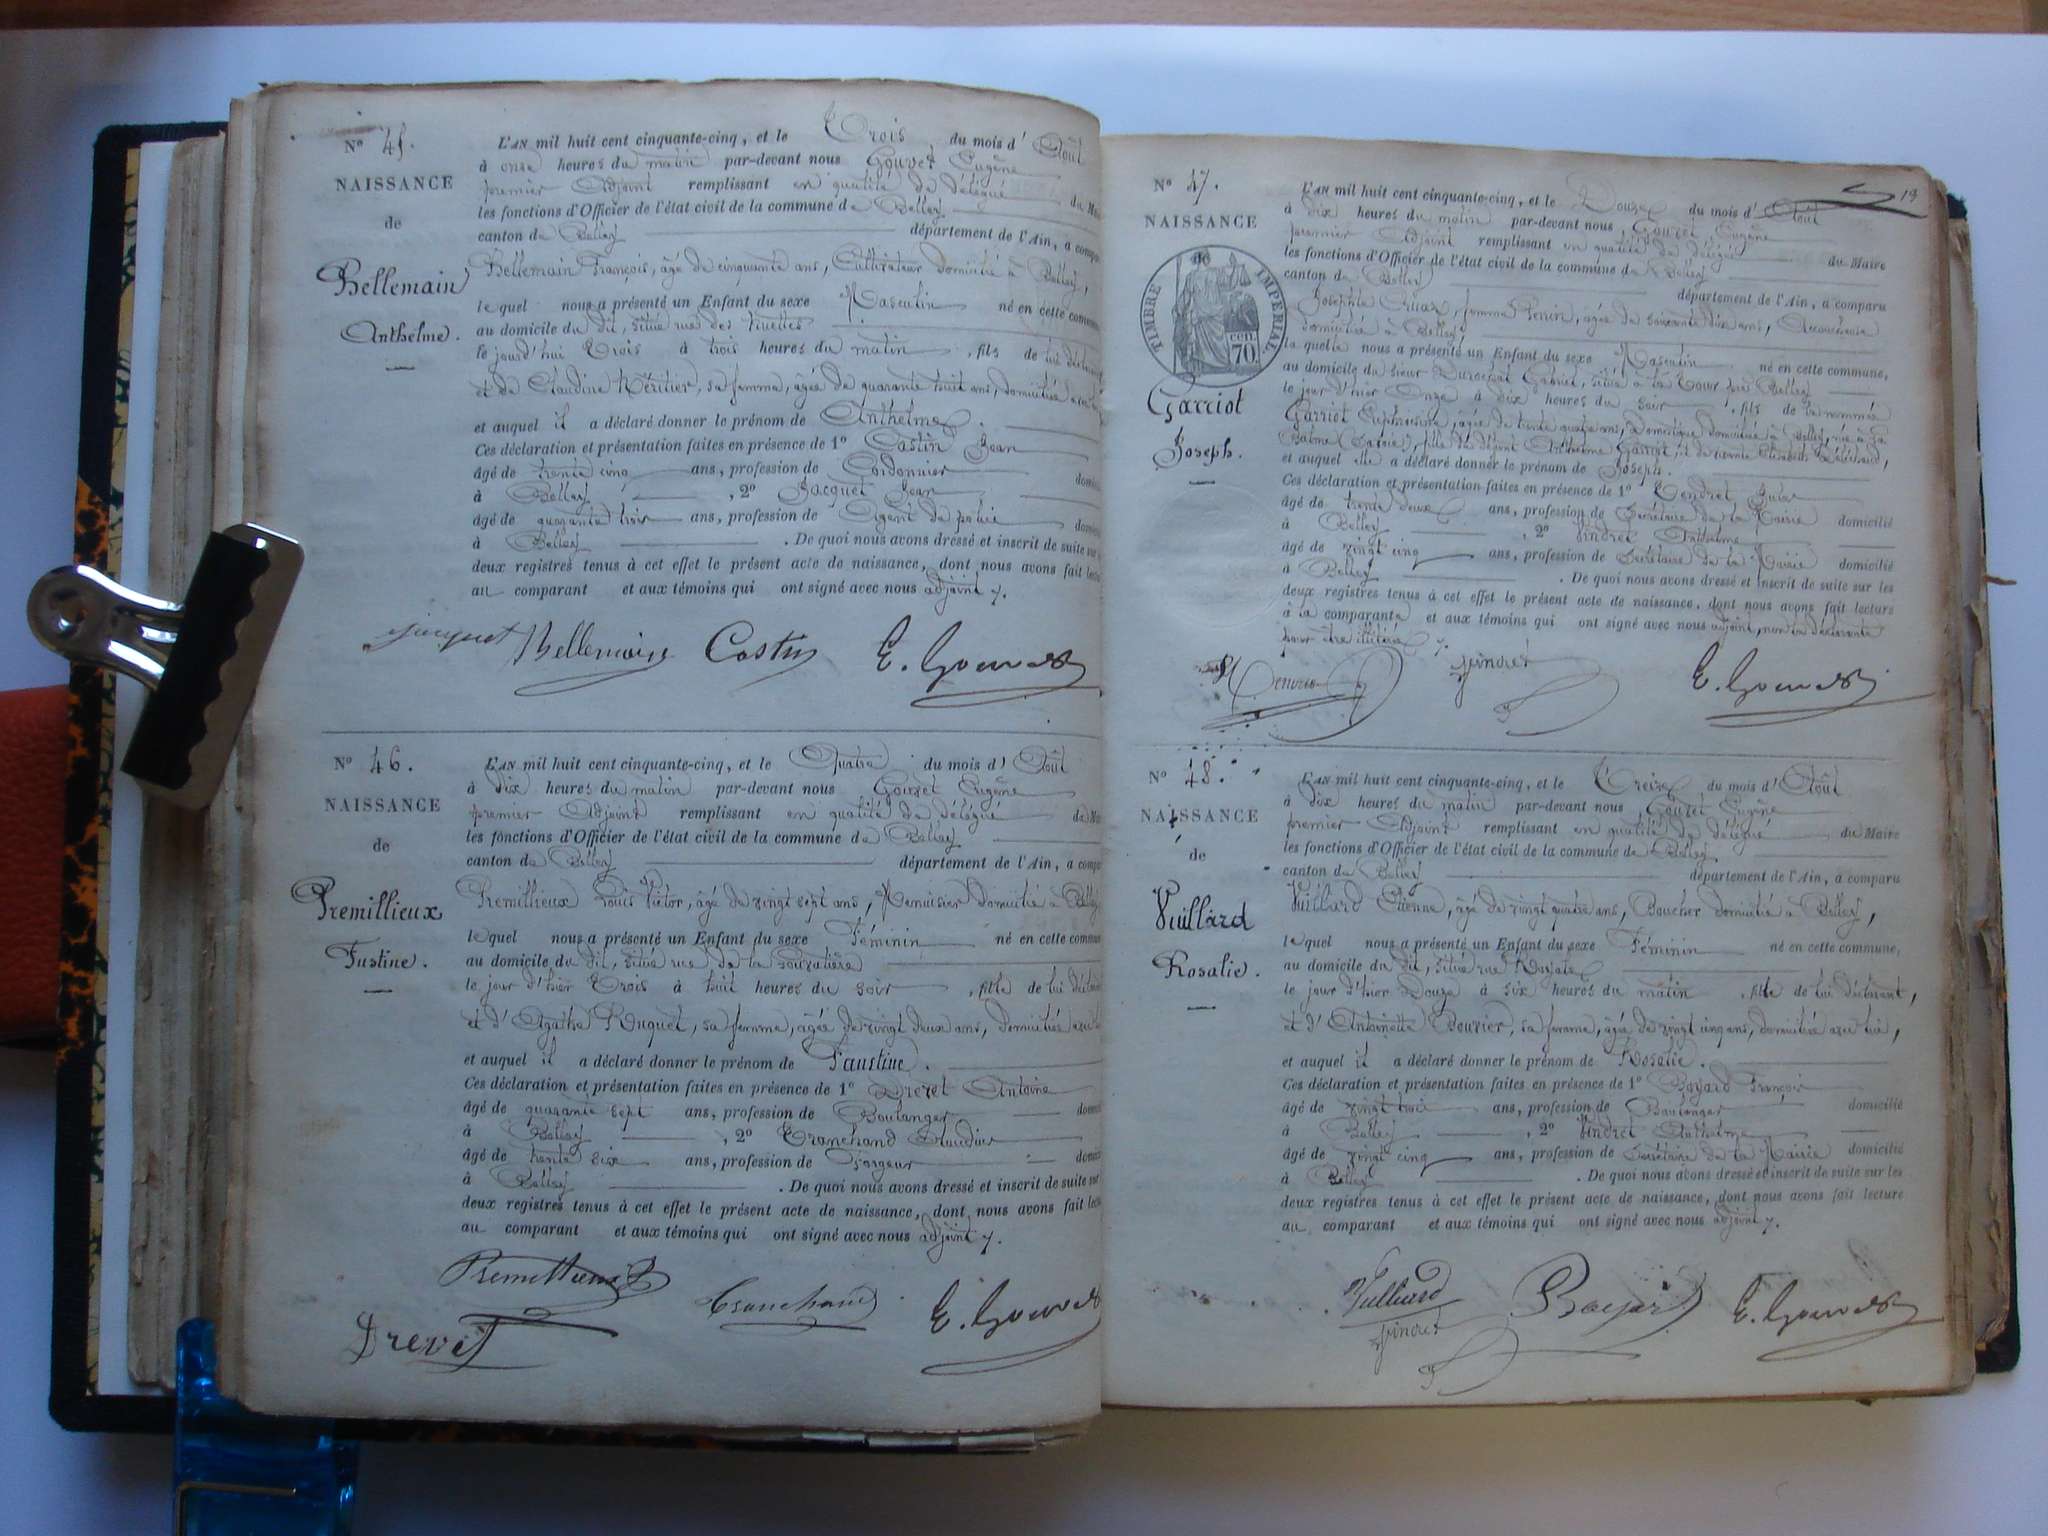 N° 45.
NAISSANCE
de
Bellemain
Anthelme.
L'AN mil huit cent cinquante-cinq, et le Trois du mois d' Août
à onze heures du matin par-devant nous Gouvet Eugène
premier Adjoint remplissant en qualité de délégué du Mai
les fonctions d'Officier de l'état civil de la commune de Belley
canton de Belley département de l'Ain, a compa
Bellemain François, âgé de cinquante ans, Cultivateur domicilié à Belley,
lequel nous a présenté un Enfant du sexe Masculin né en cette commun
au domicile du dit, situé rue des
le jourd'hui Trois à trois heures du matin, fils de lui déclarant
et de Claudine Héritier, sa femme, âgée de quarante huit ans, domiciliée avec lui
et auquel il a déclaré donner le prénom de Anthelme.
Ces déclaration et présentation faites en présence de 1° Castin Jean
âgé de trente cinq ans, profession de Cordonnier domici
à Belley, 2° Jacquet Jean
âgé de quarante trois ans, profession de Agent de police domici
à Belley. De quoi nous avons dressé et inscrit de suite sur
deux registres tenus à cet effet le présent acte de naissance, dont nous avons fait lectu
au comparant et aux témoins qui ont signé avec nous adjoint.
Jacquet Bellemain Castin E. Gouvet
N° 46.
NAISSANCE
de
Premillieux
Fustine.
L'AN mil huit cent cinquante-cinq, et le Quatre du mois d' Août
à dix heures du matin par-devant nous Gouvet Eugène
premier Adjoint remplissant en qualité de délégué du Mai
les fonctions d'Officier de l'état civil de la commune de Belley
canton de Belley département de l'Ain, a compa
Premillieux Louis Victor, âgé de vingt sept ans, Menuisier domicilié à Belley
lequel nous a présenté un Enfant du sexe Féminin né en cette commun
au domicile du dit, situé rue de la
le jour d'hier Trois à huit heures du soir, fille de lui déclarant
et d' Agathe Huguet, sa femme, âgée de vingt deux ans, domiciliée avec
et auquel il a déclaré donner le prénom de Faustine.
Ces déclaration et présentation faites en présence de 1° Drevet Antoine
âgé de quarante sept ans, profession de Boulanger domici
à Belley, 2° Tranchand Claudius
âgé de trente six ans, profession de Forgeur domici
à Belley. De quoi nous avons dressé et inscrit de suite sur
deux registres tenus à cet effet le présent acte de naissance, dont nous avons fait lectu
au comparant et aux témoins qui ont signé avec nous adjoint.
Premillieux Tranchand E. Gouvet
Drevet
13
N° 47.
NAISSANCE
de
TIMBRE IMPERIAL
70 cen.
Garriot
Joseph.
L'AN mil huit cent cinquante-cinq, et le Douze du mois d' Août
à dix heures du matin par-devant nous, Gouvet Eugène
premier Adjoint remplissant en qualité de délégué du Maire
les fonctions d'Officier de l'état civil de la commune de Belley
canton de Belley département de l'Ain, a comparu
Josephte Cruaz, femme Perrin, âgée de soixante dix ans, Accoucheuse
domiciliée à Belley,
laquelle nous a présenté un Enfant du sexe Masculin né en cette commune,
au domicile du sieur Gabriel, situé à la Tour près Belley
le jour d'hier Onze à dix heures du soir, fils de la nommée
Garriot Euphrosine, âgée de trente quatre ans, Domestique domiciliée à Belley, née à la
Balme (Savoie), fille de défunt Anthelme Garriot, et de
et auquel elle a déclaré donner le prénom de Joseph.
Ces déclaration et présentation faites en présence de 1° Tendret
âgé de trente deux ans, profession de Secrétaire de la Mairie domicilié
à Belley, 2° Vindret Anthelme
âgé de vingt cinq ans, profession de Secrétaire de la Mairie domicilié
à Belley. De quoi nous avons dressé et inscrit de suite sur les
deux registres tenus à cet effet le présent acte de naissance, dont nous avons fait lecture
à la comparante et aux témoins qui ont signé avec nous adjoint, non la déclarante
pour être illitérée.
Tendret Vindret E. Gouvet
N° 48.
NAISSANCE
de
Vuillard
Rosalie.
L'AN mil huit cent cinquante-cinq, et le Treize du mois d' Août
à dix heures du matin par-devant nous Gouvet Eugène
premier Adjoint remplissant en qualité de délégué du Maire
les fonctions d'Officier de l'état civil de la commune de Belley
canton de Belley département de l'Ain, a comparu
Vuillard Etienne, âgé de vingt quatre ans, Boucher domicilié à Belley,
lequel nous a présenté un Enfant du sexe Féminin né en cette commune,
au domicile du dit, situé rue
le jour d'hier Douze à six heures du matin, fille de lui déclarant,
et d' Antoinette Bouvier, sa femme, âgée de vingt cinq ans, domiciliée avec lui,
et auquel il a déclaré donner le prénom de Rosalie.
Ces déclaration et présentation faites en présence de 1° Bayard François
âgé de vingt trois ans, profession de Boulanger domicilié
à Belley, 2° Vindret Anthelme
âgé de vingt cinq ans, profession de Secrétaire de la Mairie domicilié
à Belley. De quoi nous avons dressé et inscrit de suite sur les
deux registres tenus à cet effet le présent acte de naissance, dont nous avons fait lecture
au comparant et aux témoins qui ont signé avec nous adjoint.
Vulliard Bayard E. Gouvet
Vindret